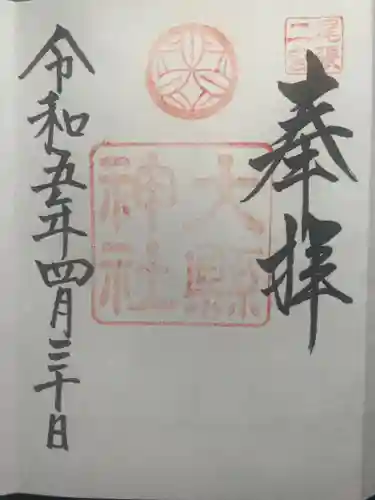 尾張
二宮
奉拝
大縣
神社
令和五年四月三十日